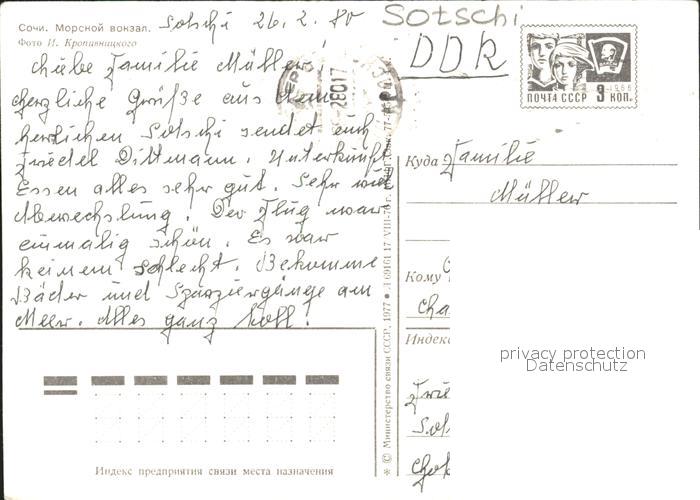 Сочи. Морской вокзал.
Фото И. Кропивницкого
Sotschi 26. 2. 80
Sotschi
DDR
ПОЧТА СССР 3 КОП.
1966
Liebe Familie Müller!
Herzliche Grüße aus dem
herrlichen Sotschi sendet euch
Friedel Dittmann. Unterkunft
Essen alles sehr gut. Sehr viel
Abwechslung. Der Flug war
einmalig schön. Es war
keinem schlecht. Bekomme
Bäder und Spaziergänge am
Meer. Alles ganz toll!
Куда Familie
Müller
Кому
Индекс
privacy protection
Datenschutz
Индекс предприятия связи места назначения
© Министерство связи СССР, 1977